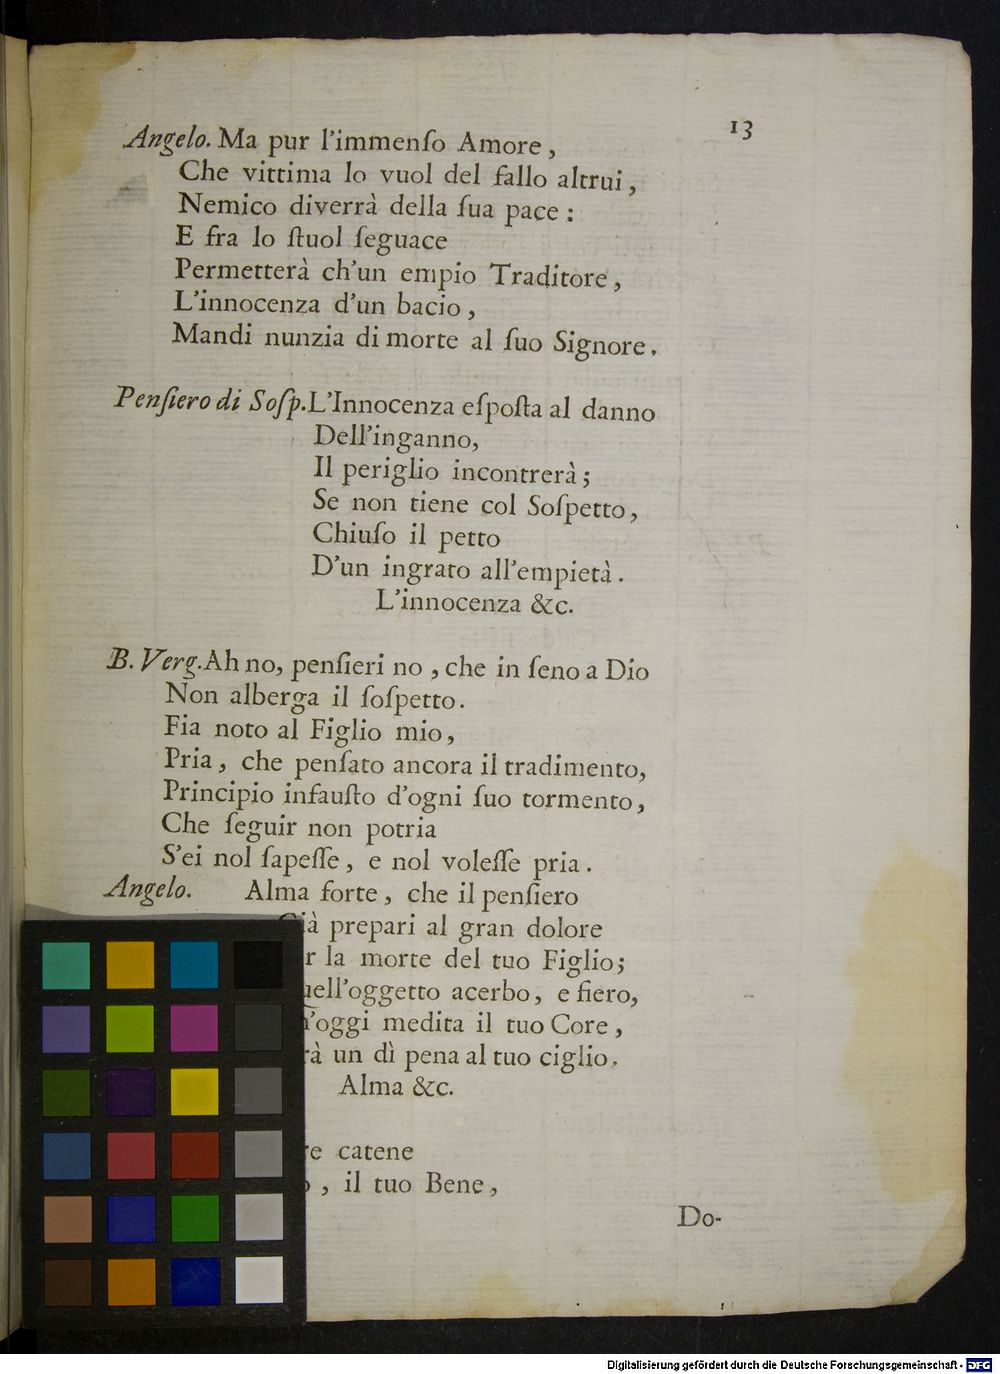 13
Angelo. Ma pur l'immenſo Amore,
Che vittima lo vuol del fallo altrui,
Nemico diverrà della ſua pace:
E fra lo ſtuol ſeguace
Permetterà ch'un empio Traditore,
L'innocenza d'un bacio,
Mandi nunzia di morte al ſuo Signore.
Penſiero di Soſp. L'Innocenza eſpoſta al danno
Dell'inganno,
Il periglio incontrerà;
Se non tiene col Soſpetto,
Chiuſo il petto
D'un ingrato all'empietà.
L'innocenza &c.
B. Verg. Ah no, penſieri no, che in ſeno a Dio
Non alberga il ſoſpetto.
Fia noto al Figlio mio,
Pria, che penſato ancora il tradimento,
Principio infauſto d'ogni ſuo tormento,
Che ſeguir non potria
S'ei nol ſapeſſe, e nol voleſſe pria.
Angelo. Alma forte, che il penſiero
Già prepari al gran dolore
r la morte del tuo Figlio;
uell'oggetto acerbo, e fiero,
'oggi medita il tuo Core,
rà un dì pena al tuo ciglio.
Alma &c.
re catene
, il tuo Bene,
Do-
Digitalisierung gefördert durch die Deutsche Forschungsgemeinschaft - DFG